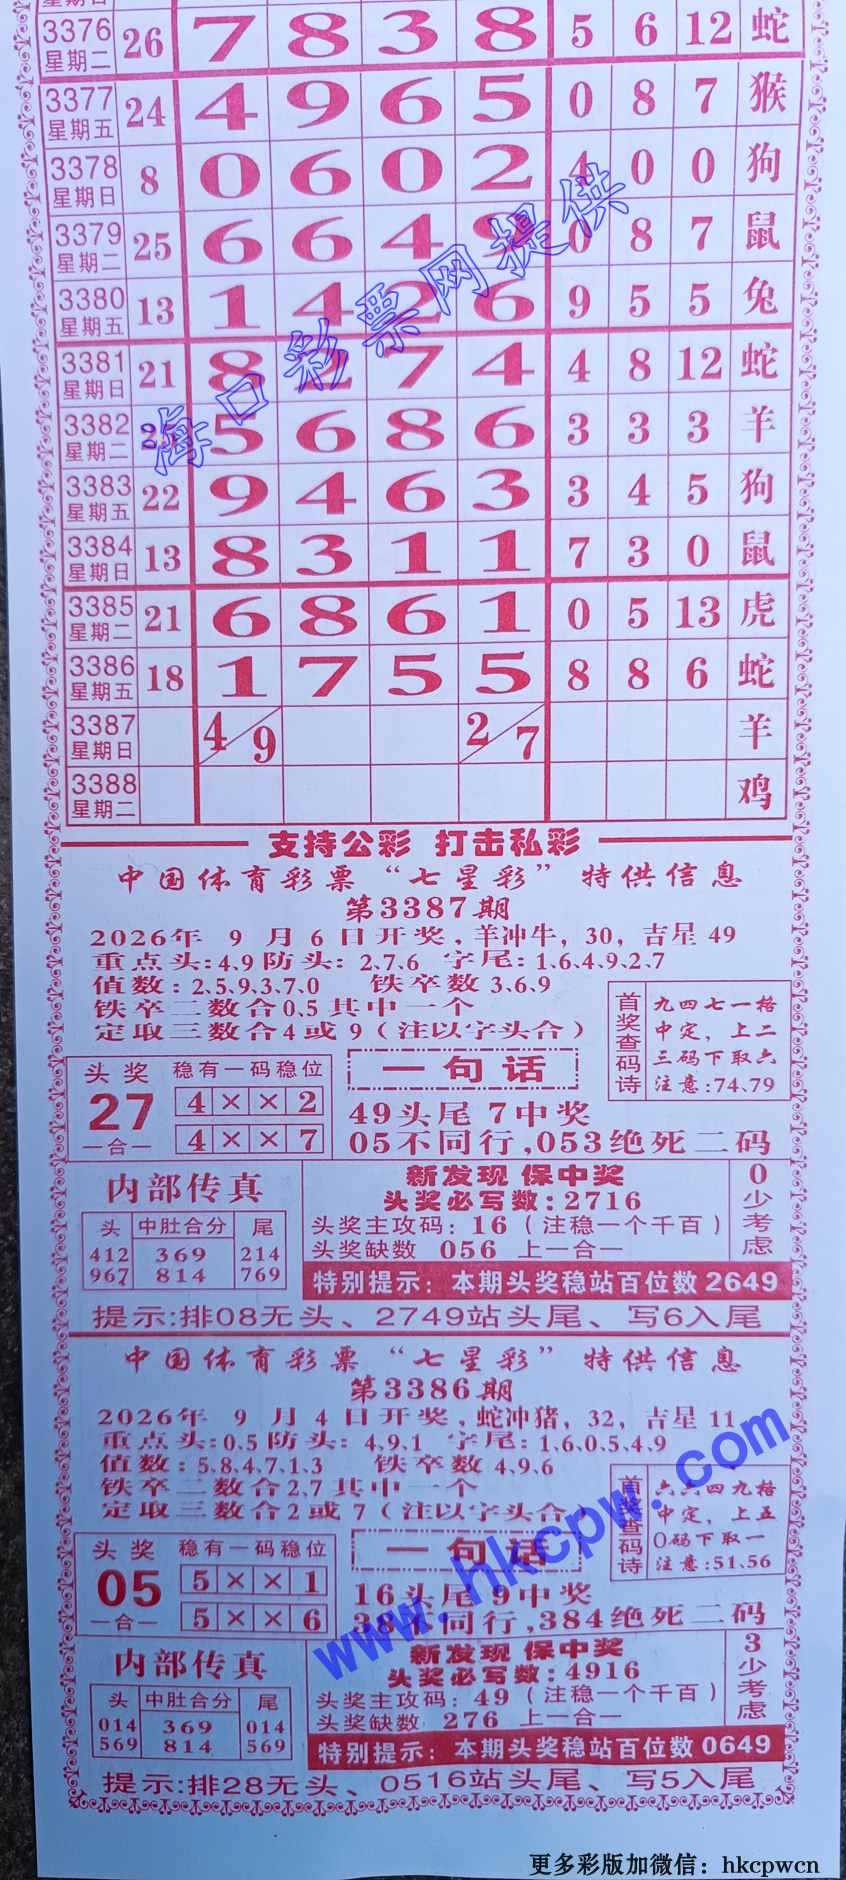 3376 星期二 26 7 8 3 8 5 6 12 蛇
3377 星期五 24 4 9 6 5 0 8 7 猴
3378 星期日 8 0 6 0 2 4 0 0 狗
3379 星期二 25 6 6 4 9 0 8 7 鼠
3380 星期五 13 1 4 2 6 9 5 5 兔
3381 星期日 21 8 2 7 4 4 8 12 蛇
3382 星期二 5 6 8 6 3 3 3 羊
3383 星期五 22 9 4 6 3 3 4 5 狗
3384 星期日 13 8 3 1 1 7 3 0 鼠
3385 星期二 21 6 8 6 1 0 5 13 虎
3386 星期五 18 1 7 5 5 8 8 6 蛇
3387 星期日 4/9 2/7 羊
3388 星期二 鸡
海口彩票网提供
支持公彩 打击私彩
中国体育彩票“七星彩”特供信息
第3387期
2026年 9 月 6 日开奖,羊冲牛,30,吉星49
重点头:4.9防头:2.7.6 字尾:1.6.4.9.2.7
值数:2.5.9.3.7.0 铁卒数3.6.9
铁卒二数合0.5其中一个
定取三数合4或9(注以字头合)
首奖查码诗
九四七一格
中定,上二
三码下取六
注意:74.79
头奖
27
一合一
稳有一码稳位
4 × × 2
4 × × 7
一句话
49头尾7中奖
05不同行,053绝死二码
内部传真
头 中肚合分 尾
412 369 214
967 814 769
新发现 保中奖
头奖必写数:2716
头奖主攻码:16(注稳一个千百)
头奖缺数 056 上一合一
0少考虑
特别提示:本期头奖稳站百位数2649
提示:排08无头、2749站头尾、写6入尾
中国体育彩票“七星彩”特供信息
第3386期
2026年 9 月 4 日开奖,蛇冲猪,32,吉星11
重点头:0.5防头:4.9.1 字尾:1.6.0.5.4.9
值数:5.8.4.7.1.3 铁卒数4.9.6
铁卒二数合2.7其中一个
定取三数合2或7(注以字头合)
首奖查码诗
六六四九格
中定,上五
0码下取一
注意:51.56
头奖
05
一合一
稳有一码稳位
5 × × 1
5 × × 6
一句话
16头尾9中奖
38不同行,384绝死二码
内部传真
头 中肚合分 尾
014 369 014
569 814 569
新发现 保中奖
头奖必写数:4916
头奖主攻码:49(注稳一个千百)
头奖缺数 276 上一合一
3少考虑
特别提示:本期头奖稳站百位数0649
提示:排28无头、0516站头尾、写5入尾
www.hkcpw.com
更多彩版加微信:hkcpwcn